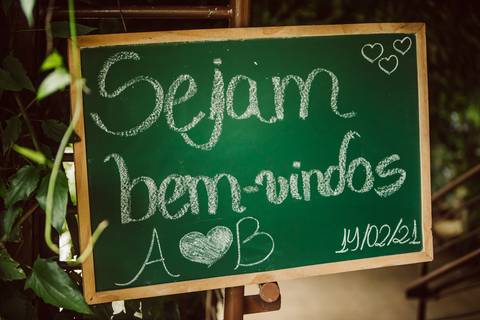 Sejam
bem-vindos
A ♥ B
14/02/21